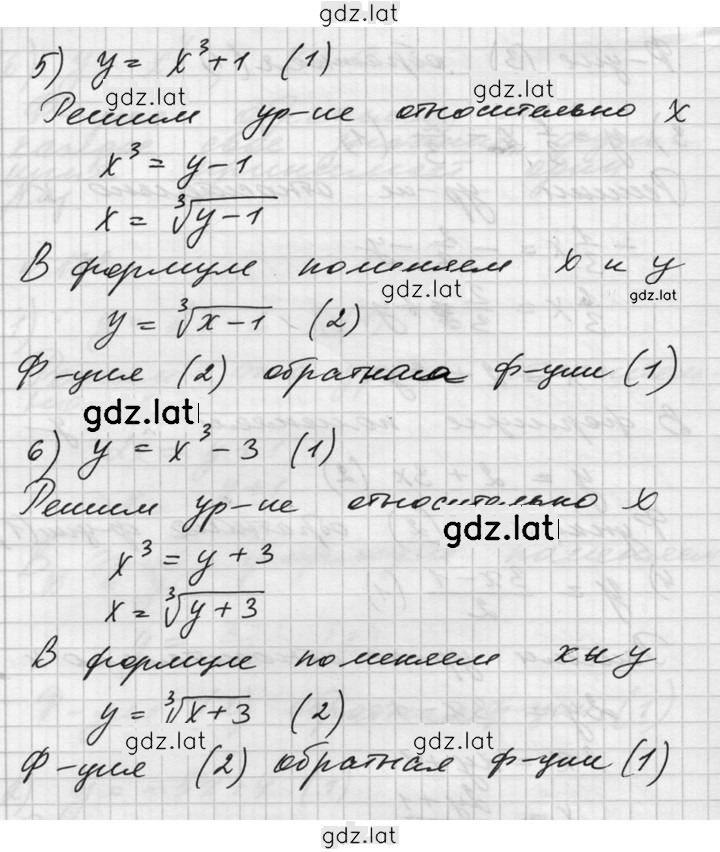 gdz.lat
5) y = x³+1 (1)
gdz.lat gdz.lat
Решим ур-ие относительно x
x³ = y-1
x = ∛(y-1)
В формуле поменяем x и y
gdz.lat gdz.lat
y = ∛(x-1) (2)
Ф-ция (2) обратная ф-ции (1)
gdz.lat
6) y = x³-3 (1)
Решим ур-ие относительно x
gdz.lat
x³ = y+3
x = ∛(y+3)
В формуле поменяем x и y
y = ∛(x+3) (2)
gdz.lat gdz.lat
Ф-ция (2) обратная ф-ции (1)
gdz.lat